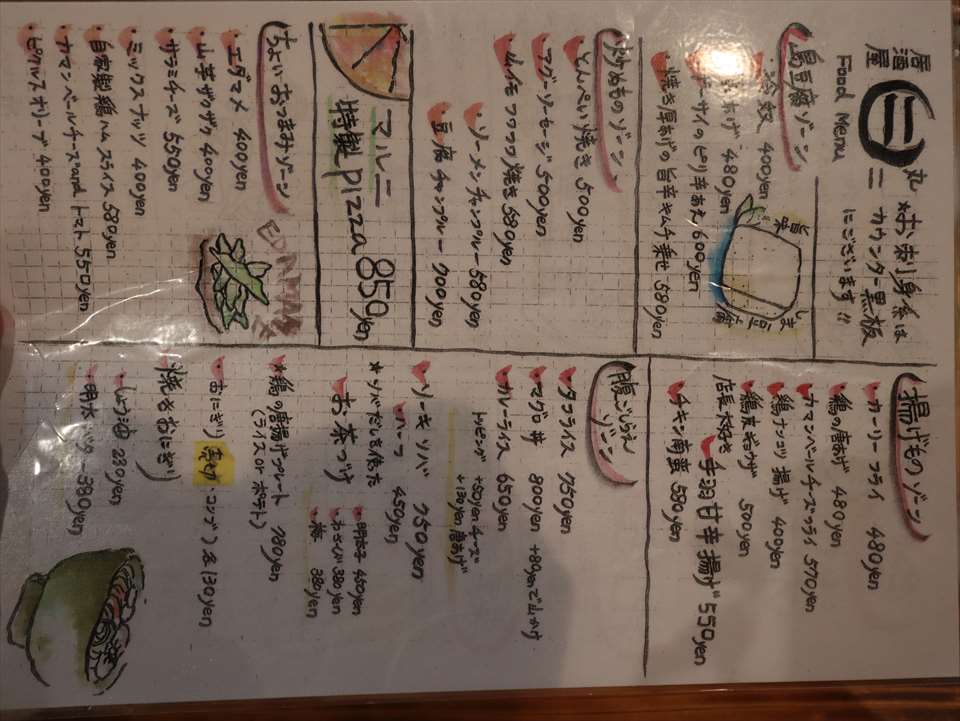 居酒屋 ㊁ 丸二
Food Menu
*お刺身系は
カウンター黒板
にございます!!
島豆腐ゾーン
・冷奴 400yen
480yen
ピリ辛あえ 600yen
・焼き厚あげの旨辛キムチ乗せ 580yen
旨味
しま豆腐
炒めものゾーン
・とんぺい焼き 500yen
・アグーソーセージ 500yen
・山イモフワフワ焼き 580yen
・ソーメンチャンプルー 580yen
・豆腐チャンプルー 700yen
マルニ
特製pizza 850yen
ちょいおつまみゾーン
・エダマメ 400yen
・山芋ザクザク 400yen
・サラミチーズ 550yen
・ミックスナッツ 400yen
・自家製鶏ハムスライス 580yen
・カマンベールチーズandトマト 550yen
・ピクルスオリーブ 400yen
EDAMAME
揚げものゾーン
・カーリーフライ 480yen
・鶏の唐あげ 480yen
・カマンベールチーズフライ 570yen
・鶏ナンコツ揚げ 400yen
・鶏皮ギョウザ 500yen
店長大好き 手羽甘辛揚げ 550yen
・チキン南蛮 580yen
腹ごしらえゾーン
・タコライス 750yen
・マグロ丼 800yen +80yenで山かけ
・カレーライス 650yen
トッピング +100yen チーズ
+130yen 唐あげ
・ソーキソバ 750yen
・ハーフ 450yen
*ソバだしを使った
お茶づけ
・明太子 450yen
・わさび 380yen
・梅 380yen
*鶏の唐揚げプレート 780yen
(ライス or ポテト)
・おにぎり
焼きおにぎり
・しょうゆ 230yen
・明太バター 380yen